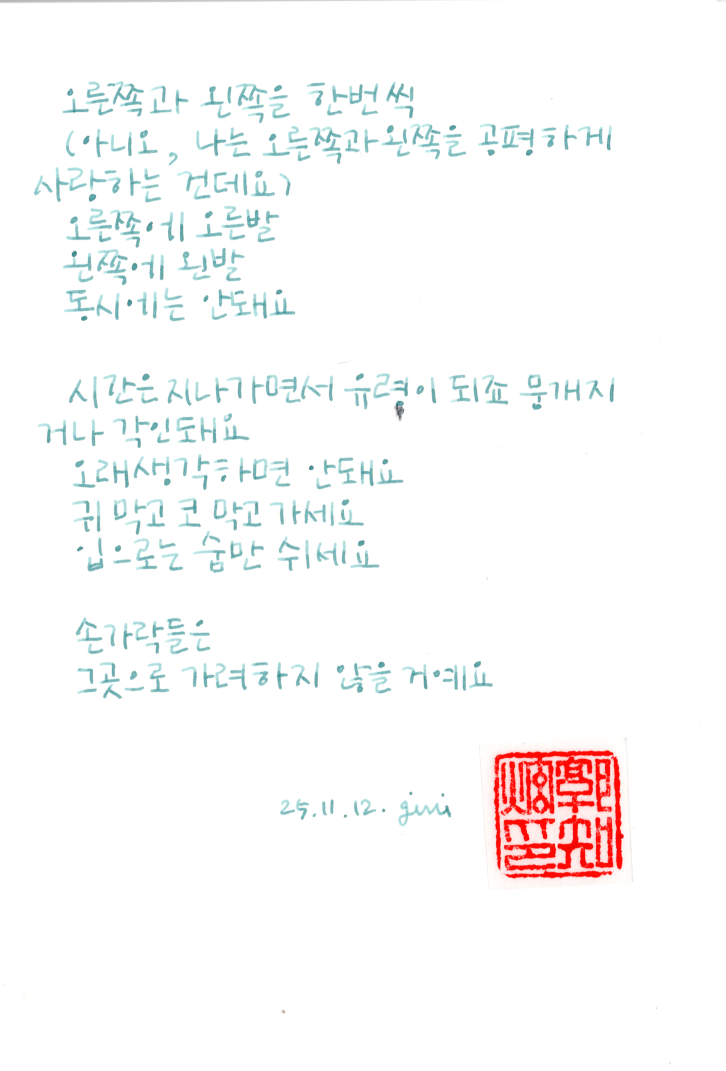 오른쪽과 왼쪽을 한번씩
(아니오, 나는 오른쪽과 왼쪽을 공평하게
사랑하는 건데요)
오른쪽에 오른발
왼쪽에 왼발
동시에는 안돼요
시간은 지나가면서 유령이 되죠 뭉개지
거나 각인돼요
오래생각하면 안돼요
귀 막고 코 막고 가세요
입으로는 숨만 쉬세요
손가락들은
그곳으로 가려하지 않을 거예요
25.11.12. gini